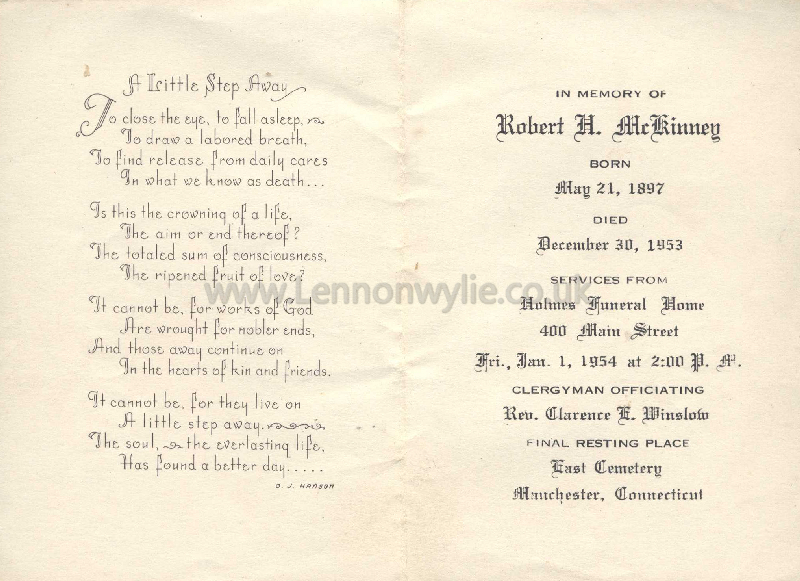 A Little Step Away
To close the eye, to fall asleep,
To draw a labored breath,
To find release from daily cares
In what we know as death...
Is this the crowning of a life,
The aim or end thereof?
The totaled sum of consciousness,
The ripened fruit of love?
It cannot be, for works of God
Are wrought for nobler ends,
And those away continue on
In the hearts of kin and friends.
It cannot be, for they live on
A little step away.
The soul, the everlasting life,
Has found a better day.....
O. J. HANSON
IN MEMORY OF
Robert H. McKinney
BORN
May 21, 1897
DIED
December 30, 1953
SERVICES FROM
Holmes Funeral Home
400 Main Street
Fri., Jan. 1, 1954 at 2:00 P. M.
CLERGYMAN OFFICIATING
Rev. Clarence E. Winslow
FINAL RESTING PLACE
East Cemetery
Manchester, Connecticut
www.Lennonwylie.co.uk